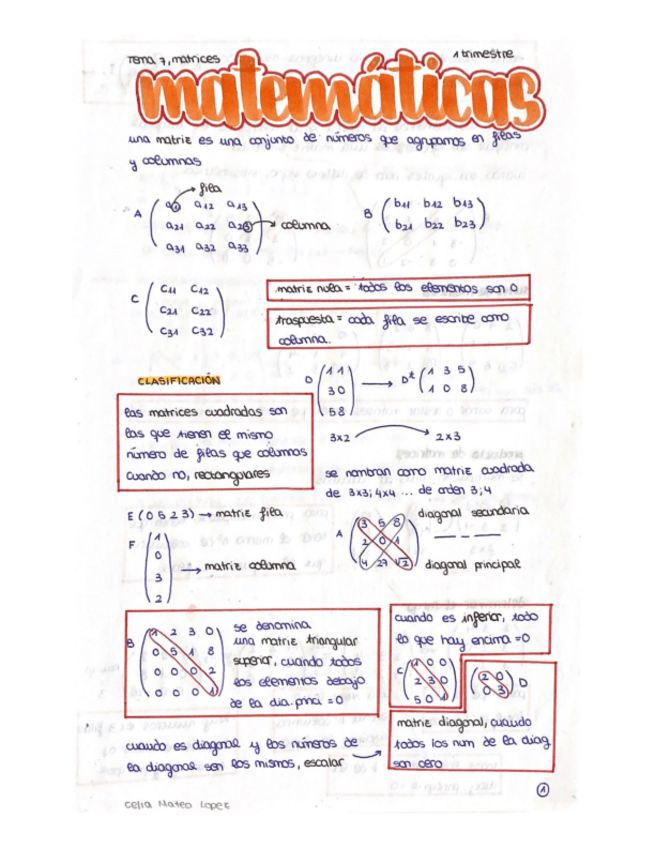 Tema 7, matrices 1 trimestre
matemáticas
una matriz es una conjunto de números que agrupamos en filas
y columnas
fila
A ( a12 a13
a21 a22 a23 → columna
a31 a32 a33 )
B ( b11 b12 b13
b21 b22 b23 )
C ( C11 C12
C21 C22
C31 C32 )
matriz nula = todos los elementos son 0
traspuesta = cada fila se escribe como
columna.
CLASIFICACIÓN
las matrices cuadradas son
las que tienen el mismo
número de filas que columnas
cuando no, rectangulares
D ( 1 1
3 0
5 8 ) → Dt ( 1 3 5
1 0 8 )
3x2 → 2x3
se nombran como matriz cuadrada
de 3x3; 4x4 ... de orden 3; 4
E ( 0 5 2 3 ) → matriz fila
F ( 1
0
3
2 ) → matriz columna
diagonal secundaria
A ( 3 5 8
2 0 1
4 27 √2 )
diagonal principal
B ( 1 2 3 0
0 5 1 8
0 0 0 2
0 0 0 1 )
se denomina
una matriz triangular
superior, cuando todos
los elementos debajo
de la dia. princi = 0
cuando es inferior, todo
lo que hay encima = 0
C ( 1 0 0
2 3 0
5 0 1 )
( 2 0
0 3 ) D
matriz diagonal, cuando
todos los num de la diag
son cero
cuando es diagonal y los números de
la diagonal son los mismos, escalar
1
Celia Mateo Lopez